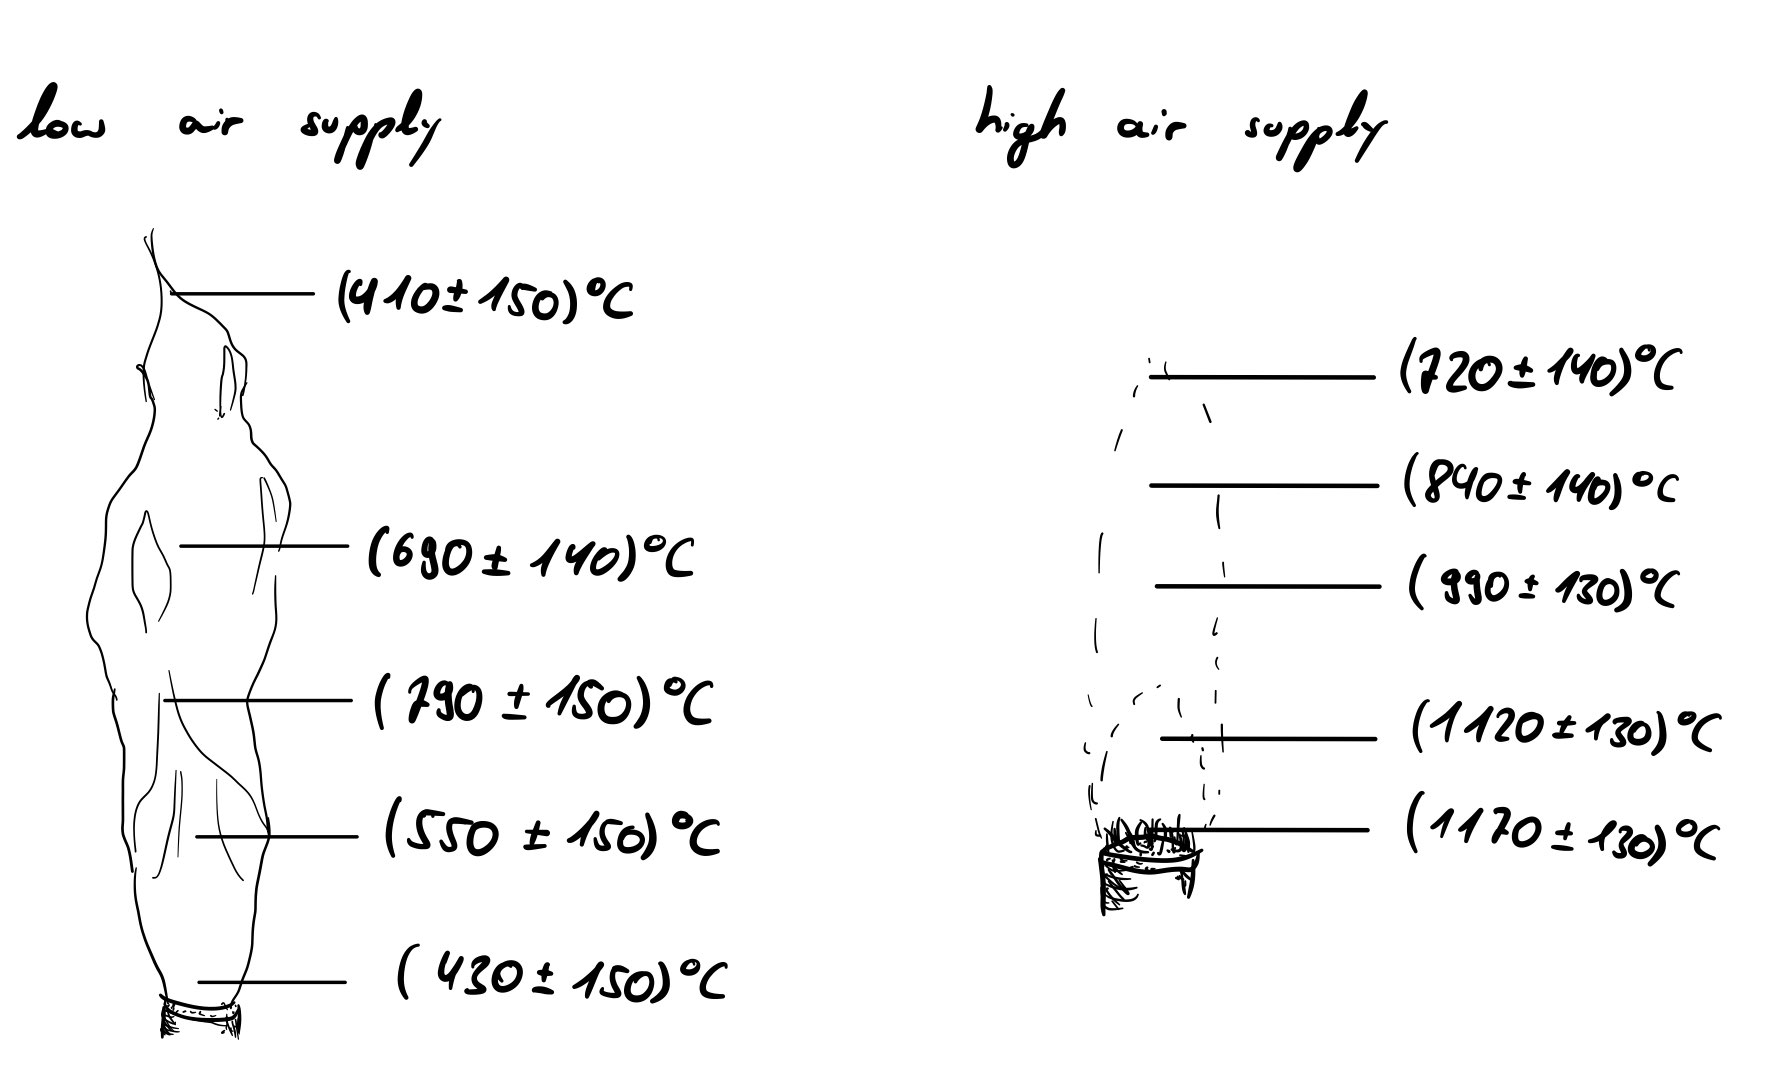 low air supply
(410 ± 150)°C
(690 ± 140)°C
(790 ± 150)°C
(550 ± 150)°C
(430 ± 150)°C
high air supply
(720 ± 140)°C
(840 ± 140)°C
(990 ± 130)°C
(1120 ± 130)°C
(1170 ± 130)°C